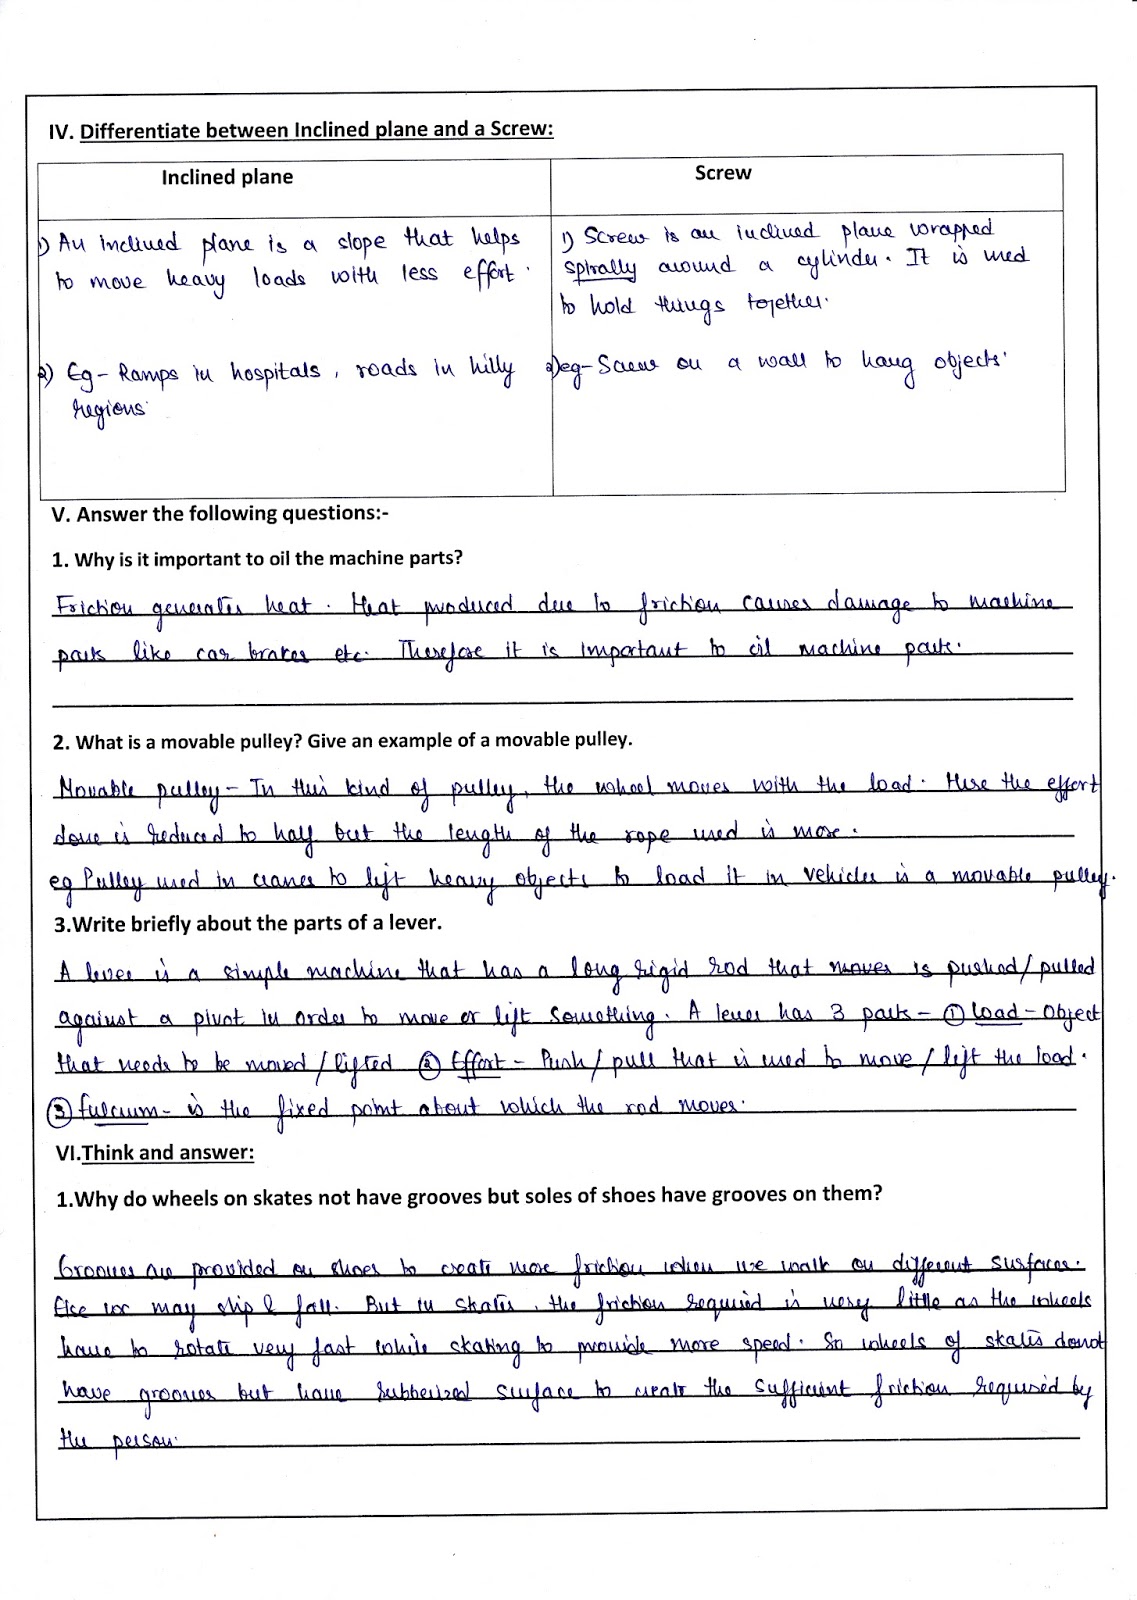 IV. Differentiate between Inclined plane and a Screw:
Inclined plane
Screw
1) An inclined plane is a slope that helps
to move heavy loads with less effort.
1) Screw is an inclined plane wrapped
spirally around a cylinder. It is used
to hold things together.
2) Eg- Ramps in hospitals, roads in hilly
regions.
2) eg- Screw on a wall to hang objects.
V. Answer the following questions:-
1. Why is it important to oil the machine parts?
Friction generates heat. Heat produced due to friction causes damage to machine
parts like car brakes etc. Therefore it is important to oil machine parts.
2. What is a movable pulley? Give an example of a movable pulley.
Movable pulley- In this kind of pulley, the wheel moves with the load. Here the effort
done is reduced to half but the length of the rope used is more.
eg Pulley used in cranes to lift heavy objects to load it in vehicles is a movable pulley.
3.Write briefly about the parts of a lever.
A lever is a simple machine that has a long rigid rod that moves is pushed/pulled
against a pivot in order to move or lift something. A lever has 3 parts- ① Load - Object
that needs to be moved/lifted ② Effort - Push/pull that is used to move/lift the load.
③ fulcrum- is the fixed point about which the rod moves.
VI.Think and answer:
1.Why do wheels on skates not have grooves but soles of shoes have grooves on them?
Grooves are provided on shoes to create more friction when we walk on different surfaces.
Else we may slip & fall. But in skates, the friction required is very little as the wheels
have to rotate very fast while skating to provide more speed. So wheels of skates donot
have grooves but have rubberized surface to create the sufficient friction required by
the person.